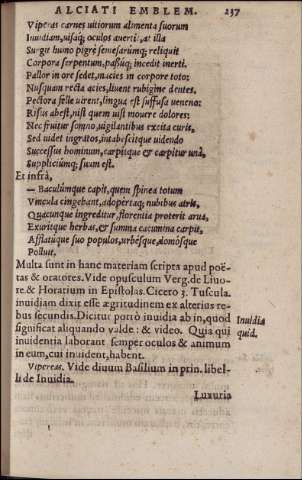 ALCIATI EMBLEM. 237
Vipereas carnes vitiorum alimenta suorum
Inuidiam, uisaq; oculos auerti: at illa
Surgit humo pigrè semesarúmq; reliquit
Corpora serpentum, passúq; incedit inerti.
Pallor in ore sedet, macies in corpore toto:
Nusquam recta acies, liuent rubigine dentes.
Pectora felle uirent, lingua est suffusa ueneno:
Risus abest, nisi quem uisi mouere dolores:
Nec fruitur somno, uigilantibus excita curis,
Sed uidet ingratos, intabescitque uidendo
Successus hominum, carpitque & carpitur unà,
Suppliciúmq; suum est.
Et infrà,
— Baculúmque capit, quem spinea totum
Vincula cingebant, adopertaq; nubibus atris,
Quacunque ingreditur, florentia proterit arua,
Exuritque herbas, & summa cacumina carpit,
Afflatúque suo populos, urbésque, domósque
Polluit.
Multa sunt in hanc materiam scripta apud poë-
tas & oratores. Vide opusculum Verg. de Liuo-
re. & Horatium in Epistolas. Cicero 3. Tuscula.
inuidiam dixit esse ægritudinem ex alterius re-
bus secundis. Dicitur porrò inuidia ab in, quod
significat aliquando valde: & video. Quia qui
inuidentia laborant semper oculos & animum
in eum, cui inuident, habent.
Inuidia
quid.
Vipereas. Vide diuum Basilium in prin. libel-
li de Inuidia.
Luxuria